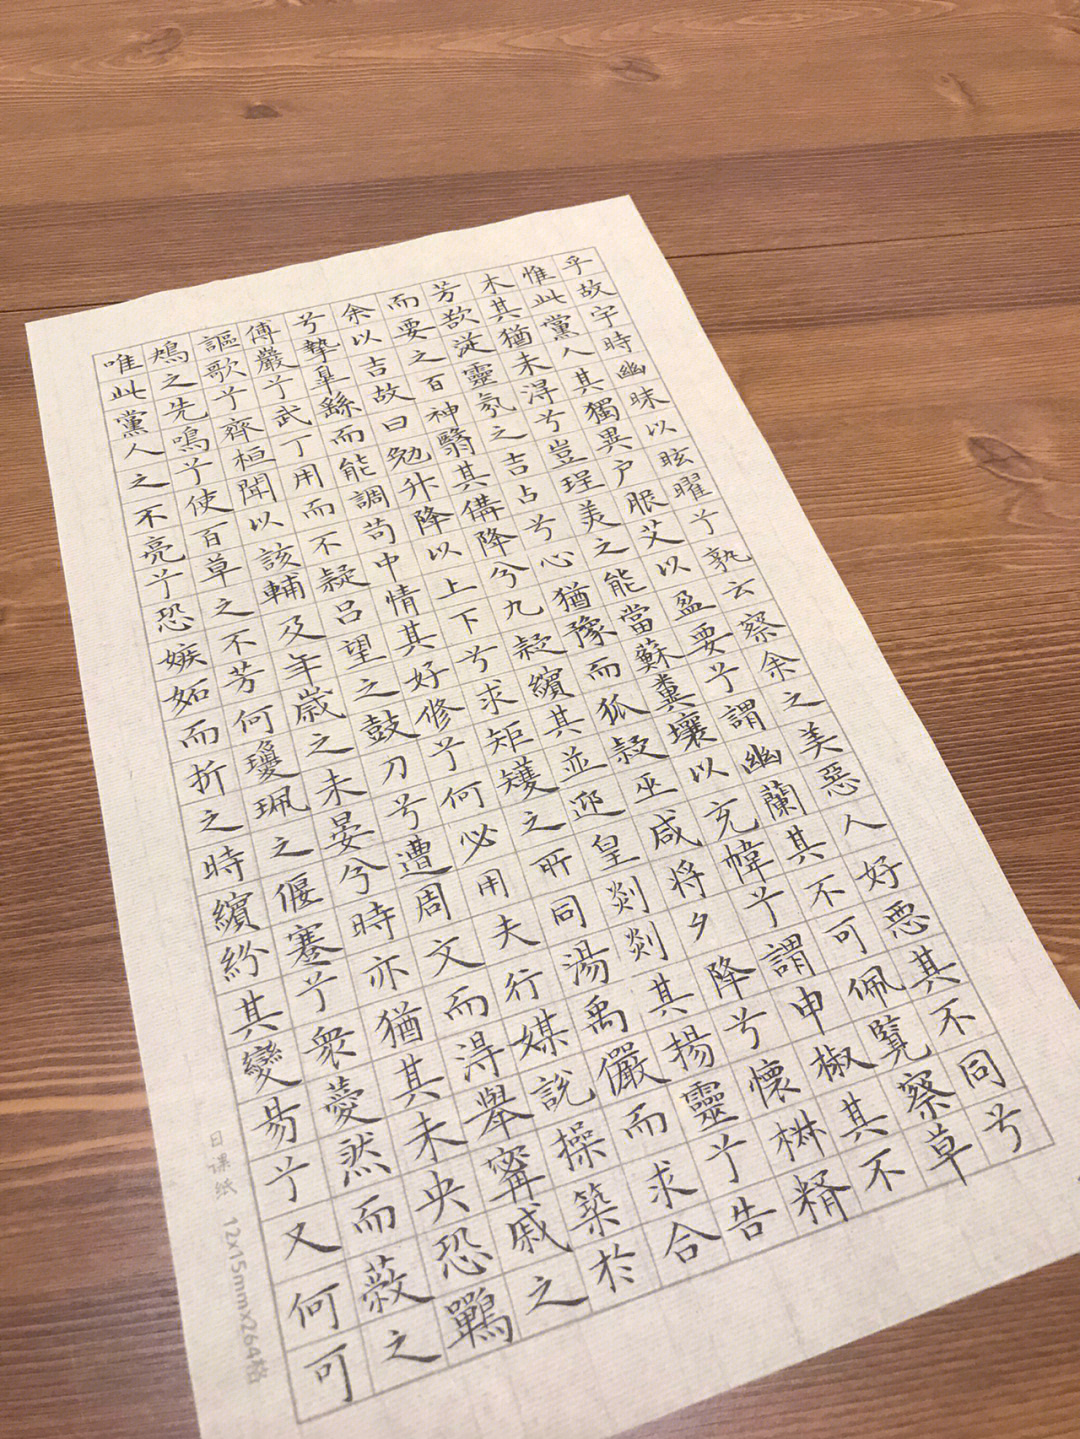 乎故宇時幽昧以眩曜兮孰云察余之美惡人好惡其不同兮
惟此黨人其獨異户服艾以盈要兮謂幽蘭其不可佩覽察草
木其猶未得兮豈珵美之能當蘇糞壤以充幃兮謂申椒其不
芳欲從靈氛之吉占兮心猶豫而狐疑巫咸將夕降兮懷椒糈
而要之百神翳其備降兮九疑繽其並迎皇剡剡其揚靈兮告
余以吉故曰勉升降以上下兮求矩矱之所同湯禹儼而求合
兮摯皋繇而能調苟中情其好修兮何必用夫行媒說操築於
傅巖兮武丁用而不疑呂望之鼓刀兮遭周文而得舉甯戚之
謳歌兮齊桓聞以該輔及年歲之未晏兮時亦猶其未央恐鷤
鴂之先鳴兮使百草之不芳何瓊珮之偃蹇兮衆薆然而蔽之
唯此黨人之不亮兮恐嫉妬而折之時繽紛其變易兮又何可
日课纸 12x15mmx264格